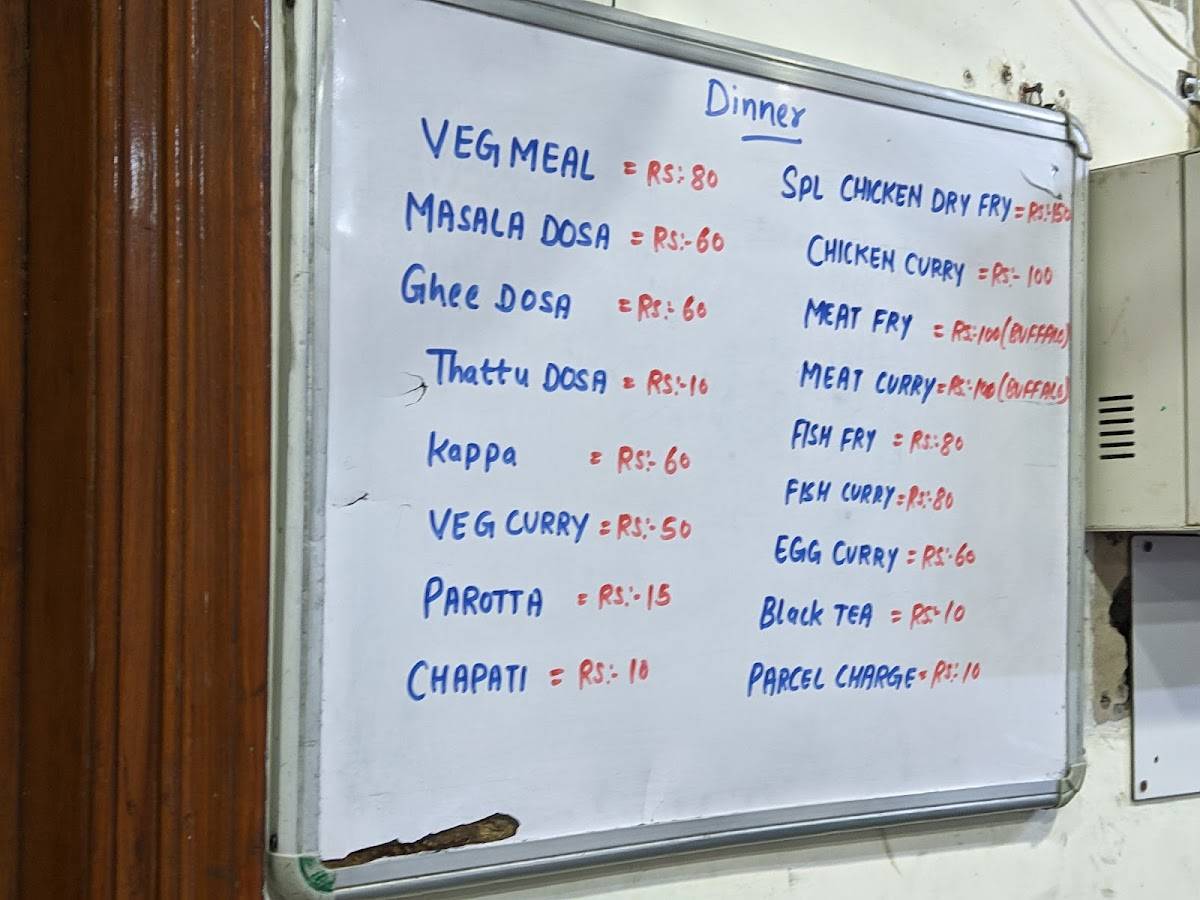 Dinner
VEG MEAL = RS:- 80
MASALA DOSA = RS:- 60
Ghee DOSA = RS:- 60
Thattu DOSA = RS:- 10
Kappa = RS:- 60
VEG CURRY = RS:- 50
PAROTTA = RS:- 15
CHAPATI = RS:- 10
SPL CHICKEN DRY FRY = RS:- 150
CHICKEN CURRY = RS:- 100
MEAT FRY = RS:- 100 (BUFFALO)
MEAT CURRY = RS:- 100 (BUFFALO)
FISH FRY = RS:- 80
FISH CURRY = RS:- 80
EGG CURRY = RS:- 60
Black TEA = RS:- 10
PARCEL CHARGE = RS:- 10